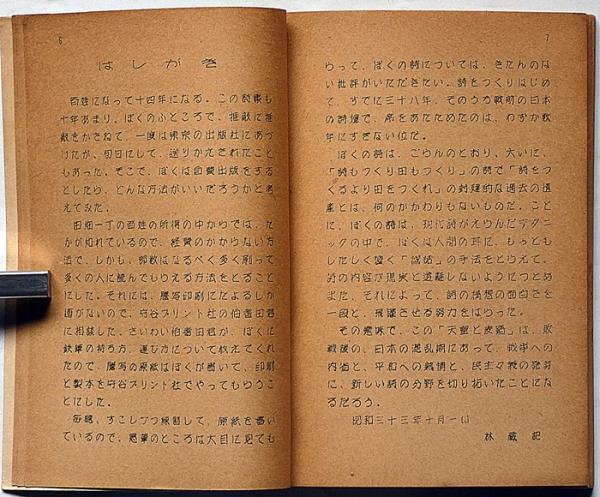 6
はしがき
百姓になって十四年になる。この詩集も
十年あまり、ぼくのふところで、推敲に推
敲をかさねて、一度は東京の出版社にあづ
けたが、何日にして、送りかえされたこと
もあった。そこで、ぼくは自費出版をする
としたら、どんな方法がいいだろうかと考
えてみた。
田畑一丁の百姓の所得の中からでは、た
かが知れているので、経費のかからない方
法で、しかも、部数はなるべく多く刷って
多くの人に読んでもらえる方法をとること
にした。それには、謄写印刷によるしか
道がないので、守谷プリント社の伯耆田君
に相談した。さいわい伯耆田君が、ぼくに
鉄筆の持ち方、運び方について教えてくれ
たので、謄写の原紙はぼくが書いて、印刷
と製本を守谷プリント社でやってもらうこ
とにした。
毎晩、すこしづつ練習して、原紙を書い
ているので、悪筆のところは大目に見ても
7
らって、ぼくの詩については、きたんのな
い批評がいただきたい。詩をつくりはじめ
て、すでに三十八年、そのうち戦前の日本
の詩壇で、席をあたためたのは、わずか数年
にすぎない位だ。
ぼくの詩は、ごらんのとおり、大いに、
「詩もつくり田もつくり」の詩で「詩をつ
くるより田をつくれ」の封建的な過去の遺
産とは、何のかかわりもないものだ。こと
に、ぼくの詩は、現代詩がえらんだテクニ
ックの中で、ぼくは人間の耳に、もっとも
したしく響く「説話」の手法をとりいれて、
詩の内容が現実と遊離しないようにつとめ
また、それによって、詩の構想の面白さを
一段と、飛躍させる努力をはらった。
その意味で、この「天皇と炭焼」は、敗
戦後の、日本の混乱期にあって、戦争への
内省と、平和への熱情と、民主々義の発芽
に、新しい詩の分野を切り拓いたことにな
るだろう。
昭和三十三年十月一日
林 蔵記